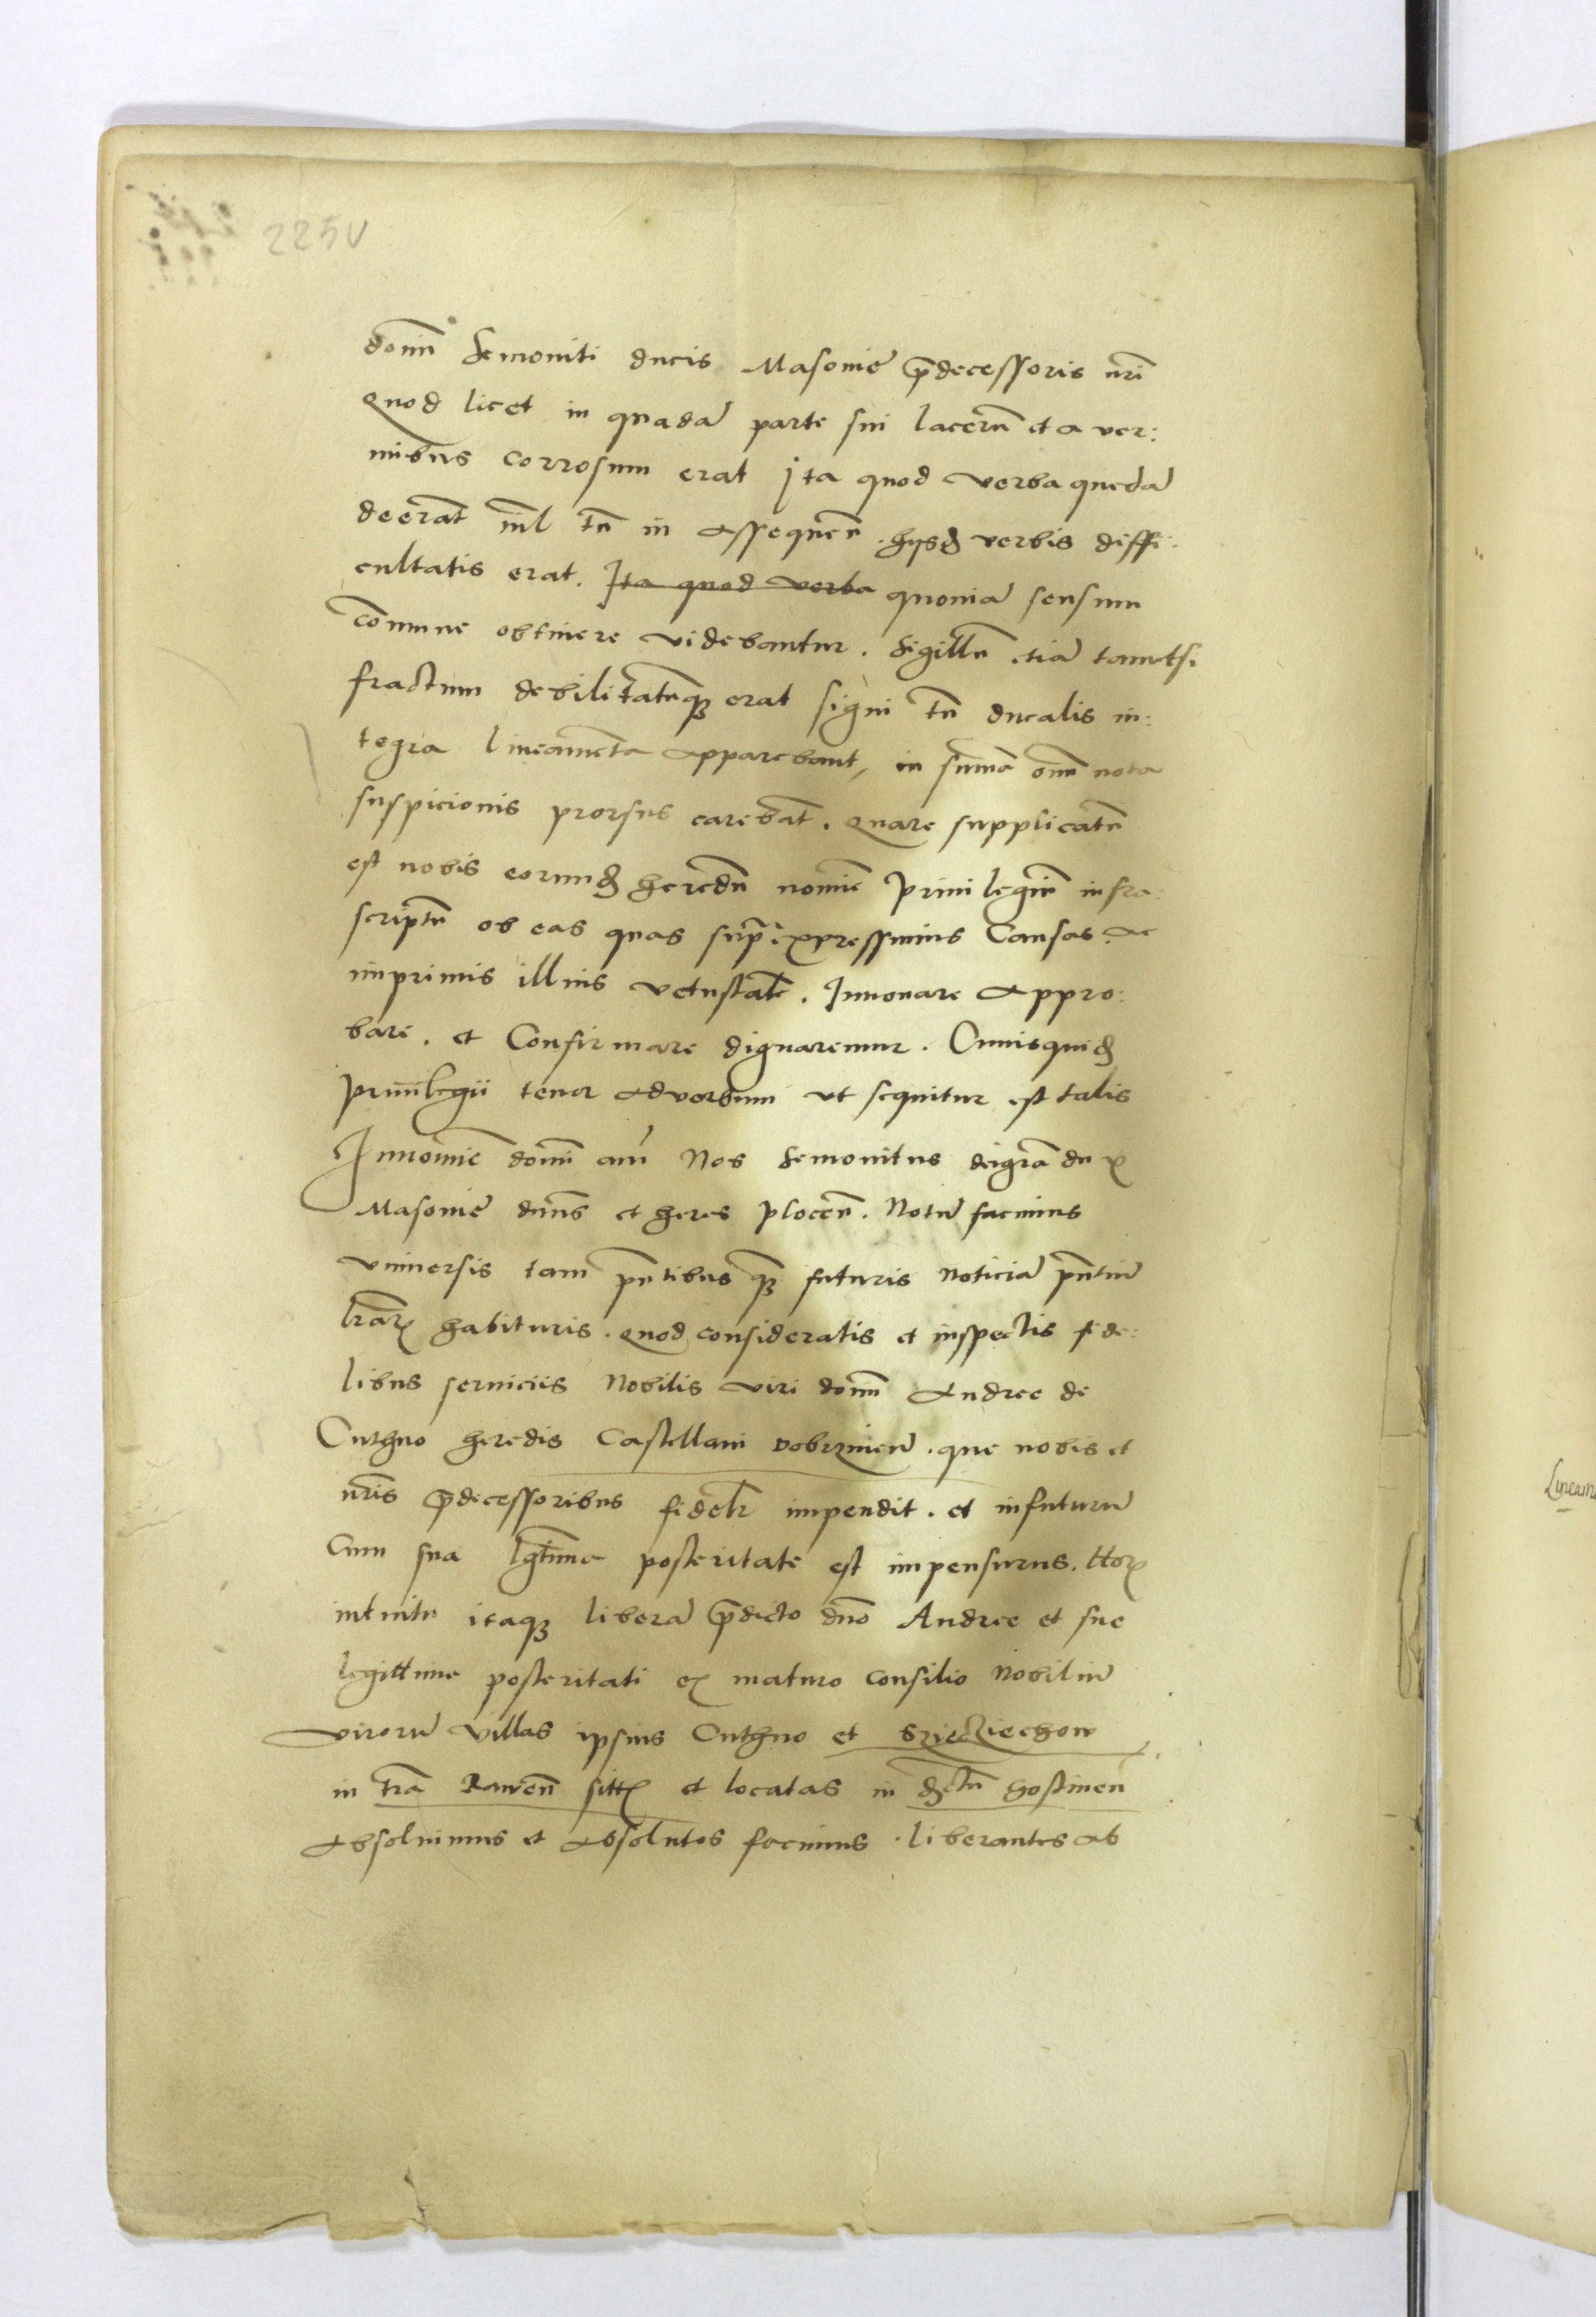 225v
domĩ Semoviti ducis Masovie p̃decessoris nr̃i
Quod licet in quadã parte sui lacerũ et a ver:
mibus corrosum erat ita quod verba quedã
deerãt nĩl tñ in assequeñ hysđ verbis diffi:
cultatis erat. Ita quod verba quoniã sensum
cõmune obtinere videbantur. Sigillũ etiã tametsi
fractum debilitatũqʒ erat signi tñ ducalis in:
tegra lineamẽta apparebant, in sũma om̃i nota
suspicionis prorsus carebãt. Quare supplicatũ
est nobis eorumđ heredũ nomĩe privilegiũ infra
scriptũ ob eas quas supra expressimus Causas ac
imprimis illius vetustatẽ. Innovare appro:
bare. et Confirmare dignaremur. Cuiusquidẽ
privilegii tenor adverbum ut sequitur est talis
In nomĩe domĩ am̃ Nos Semovitus deigr̃a dux
Masovie dñns et heres ploceñ. Notũ facimus
universis tam pñtibus qʒ futuris noticiã pñtiũ
lr̃arꝝ habituris. quod consideratis et inspectis fide:
libus serviciis Nobilis viri domĩ Andree de
Cuthno heredis Castellani Dobrzineñ. que nobis et
nr̃is p̃decessoribus fidelr̃ impendit. et infuturũ
Cum sua lgt̃ima posteritate est impensurus. Horꝝ
intuitu itaqʒ liberã p̃dicto dño Andree et sue
legittime posteritati ex maturo consilio Nobiliũ
virorũ villas ipsius Cuthno et Sziecziechow
in tr̃a Raweñ sitt̃ et locatas in đctũ Gostineñ
absolvimus et absolutos facimus. liberantes ab